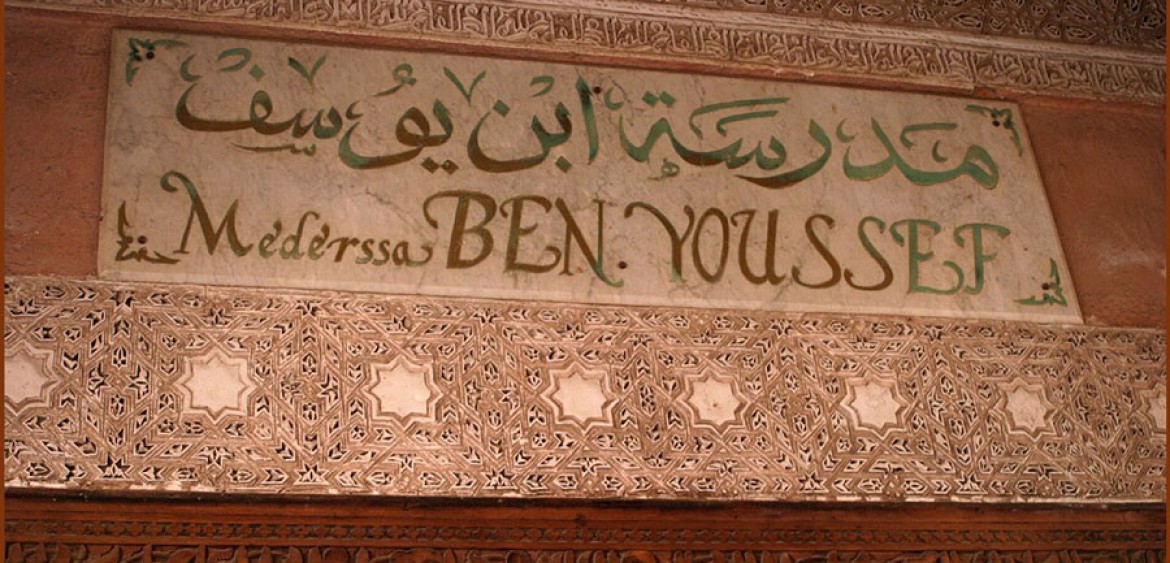 مدرسة ابن يوسف
Mederssa BEN. YOUSSEF